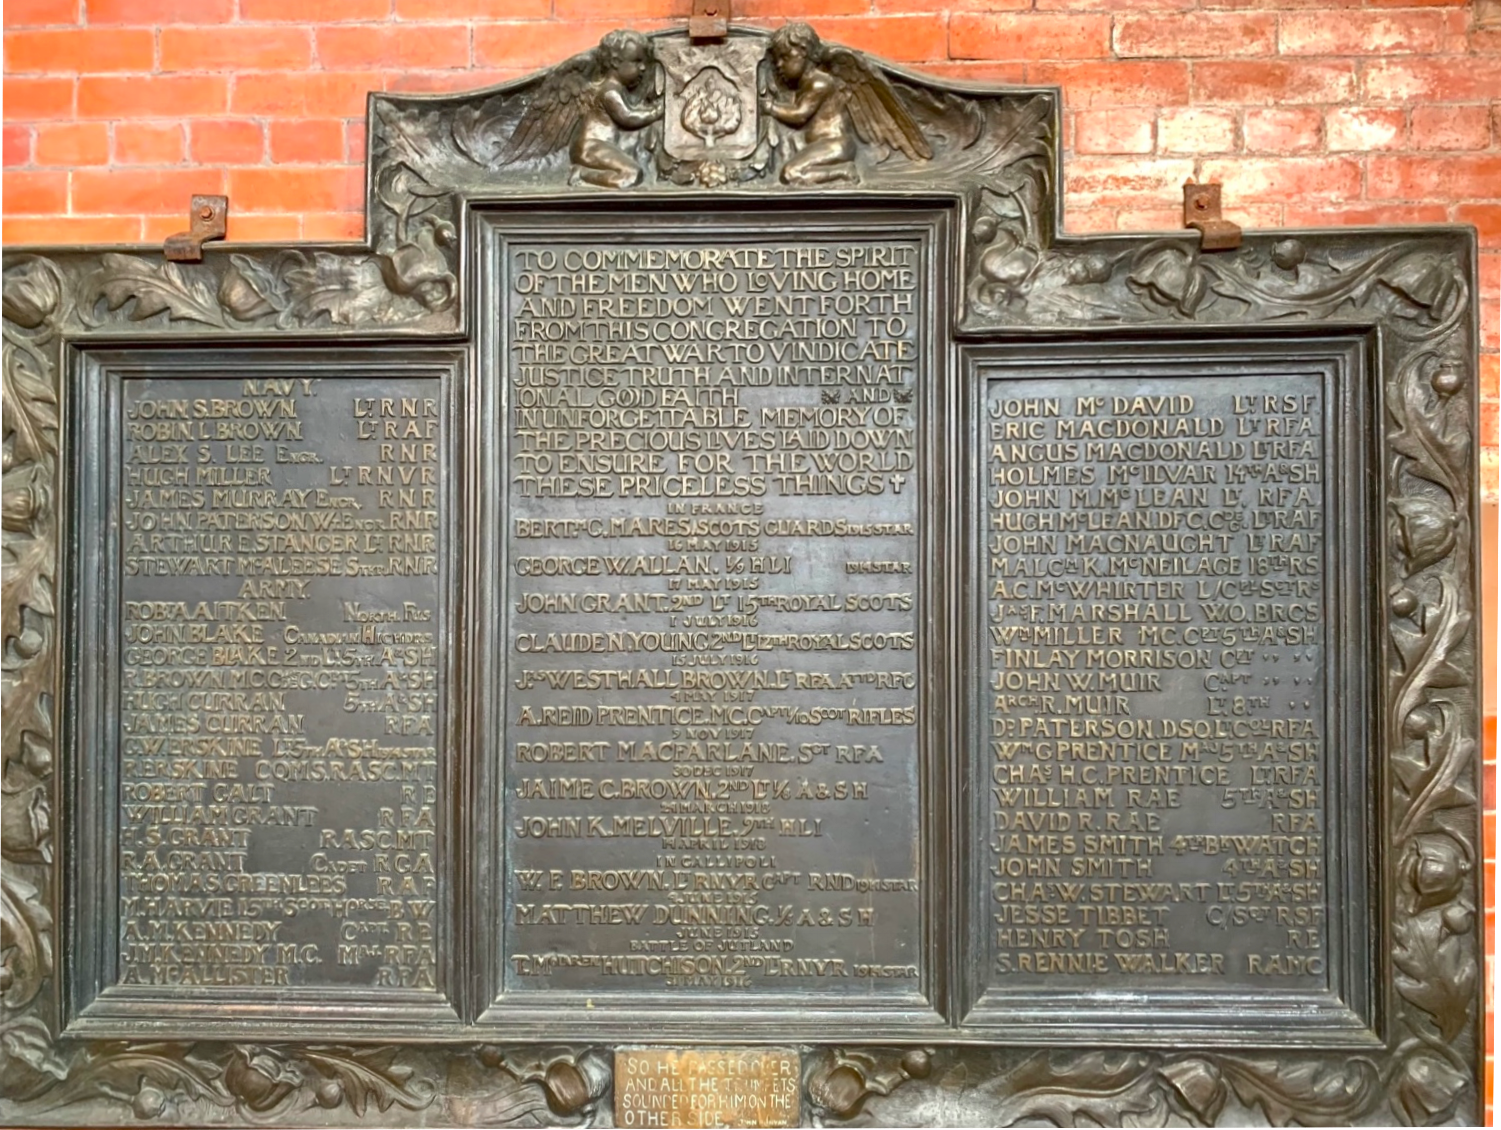 NAVY.
JOHN S. BROWN. LT RNR
ROBIN L. BROWN LT RAF
ALEX S. LEE ENGR. RNR
HUGH MILLER LT RNVR
JAMES MURRAY ENGR. RNR
JOHN PATERSON W-ENGR. RNR
ARTHUR E. STANGER LT RNR
STEWART MCALEESE STKR. RNR
ARMY.
ROBT A AITKEN NORTH. FUS
JOHN BLAKE CANADIAN HIGHDRS.
GEORGE BLAKE 2ND LT. 5TH A&SH
R. BROWN. MC. CPT 5TH A&SH
HUGH CURRAN 5TH A&SH
JAMES CURRAN RFA
C.W. ERSKINE LT 5TH A&SH
R. ERSKINE CQMS. RASC. MT
ROBERT GALT RE
WILLIAM GRANT RFA
H.S. GRANT RASC. MT
R.A. GRANT CADET RGA
THOMAS GREENLEES RAF
M. HARVIE 15TH SCOT HORSE. BW
A. M. KENNEDY CAPT. RE
J.M. KENNEDY M.C. MAJ. RFA
A. MCALLISTER RFA
TO COMMEMORATE THE SPIRIT
OF THE MEN WHO LOVING HOME
AND FREEDOM WENT FORTH
FROM THIS CONGREGATION TO
THE GREAT WAR TO VINDICATE
JUSTICE TRUTH AND INTERNAT
IONAL GOOD FAITH AND
IN UNFORGETTABLE MEMORY OF
THE PRECIOUS LIVES LAID DOWN
TO ENSURE FOR THE WORLD
THESE PRICELESS THINGS ✝
IN FRANCE
BERTM C. MARES. SCOTS GUARDS 1915 STAR
16 MAY 1915
GEORGE W. ALLAN. 1/6 HLI 1914 STAR
17 MAY 1915
JOHN GRANT. 2ND LT 15TH ROYAL SCOTS
1 JULY 1916
CLAUDE N. YOUNG. 2ND LT. 12TH ROYAL SCOTS
15 JULY 1916
JAS WESTHALL BROWN. LT RFA ATTD RFC
4 MAY 1917
A. REID PRENTICE. MC. CAPT 1/10 SCOT RIFLES
9 NOV 1917
ROBERT MACFARLANE. SGT RFA
30 DEC 1917
JAIME C. BROWN. 2ND LT 1/6 A&SH
24 MARCH 1918
JOHN K. MELVILLE. 9TH HLI
APRIL 1918
IN GALLIPOLI
W. P. BROWN. LT RNVR CAPT RND 1914 STAR
4 JUNE 1915
MATTHEW DUNNING. 1/5 A&SH
JUNE 1915
BATTLE OF JUTLAND
T. HUTCHISON. 2ND LT RNVR 1914 STAR
31 MAY 1916
JOHN MC DAVID LT RSF
ERIC MACDONALD LT RFA
ANGUS MACDONALD LT RFA
HOLMES MCILVAR 14TH A&SH
JOHN M. MCLEAN LT. RFA
HUGH MCLEAN. DFC. LT RAF
JOHN MACNAUGHT LT RAF
MALCM K. MCNEILAGE 18TH RS
A.C. MCWHIRTER L/CPL SCT RS
JAS F. MARSHALL W.O. BRCS
WM MILLER MC. CPT 5TH A&SH
FINLAY MORRISON CPT " "
JOHN W. MUIR CAPT " "
ARCH R. MUIR LT 8TH "
DD PATERSON DSO LT COL RFA
WM G PRENTICE MAJ 5TH A&SH
CHAS H.C. PRENTICE LT RFA
WILLIAM RAE 5TH A&SH
DAVID R. RAE RFA
JAMES SMITH 4TH BK WATCH
JOHN SMITH 4TH A&SH
CHAS W. STEWART LT. 5TH A&SH
JESSE TIBBET C/SGT RSF
HENRY TOSH RE
S. RENNIE WALKER RAMC
SO HE PASSED OVER
AND ALL THE TRUMPETS
SOUNDED FOR HIM ON THE
OTHER SIDE.